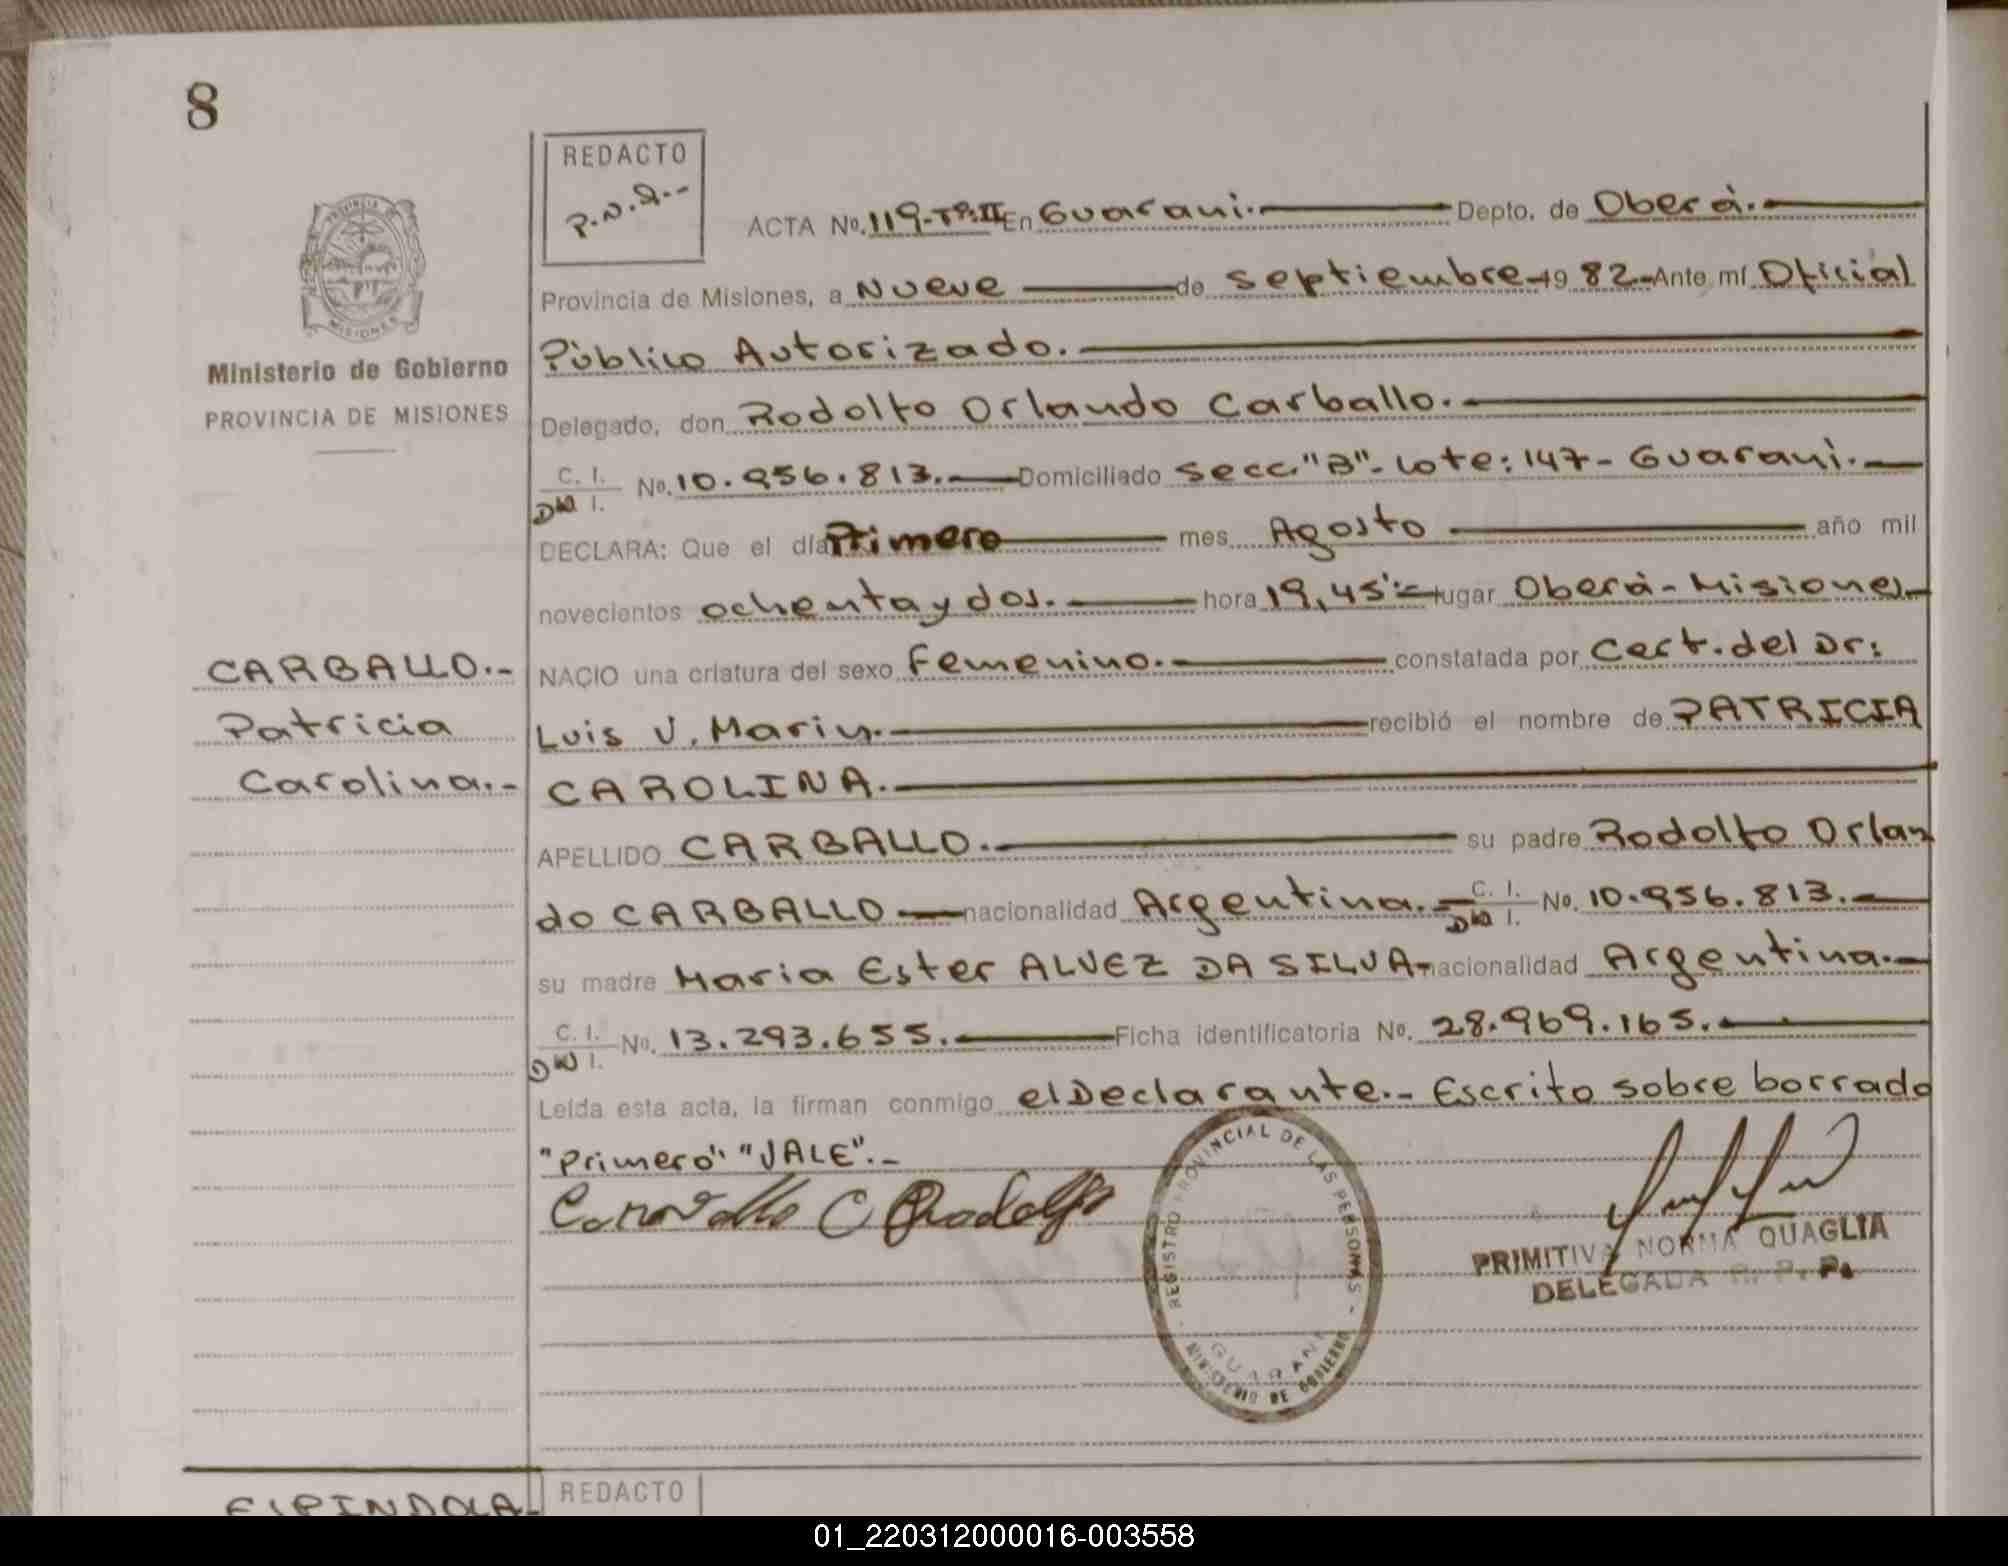 8
REDACTO
P.N.Q.--
ACTA No. 119-Tº:II En Guarani.- Depto. de Oberá.-
Provincia de Misiones, a Nueve de Septiembre 19 82.- Ante mí Oficial
Público Autorizado.
Delegado, don Rodolfo Orlando Carballo.
C. I.
DNI I. No. 10.956.813. Domiciliado Secc."B"- Lote: 147- Guarani.
DECLARA: Que el día Primero mes Agosto año mil
novecientos ochenta y dos. hora 19,45'- lugar Oberá- Misiones
NACIO una criatura del sexo Femenino. constatada por Cert. del Dr:
Luis V. Marin. recibió el nombre de PATRICIA
CAROLINA.
APELLIDO CARBALLO. su padre Rodolfo Orlan
do CARBALLO nacionalidad Argentina. C. I. DNI I. No. 10.956.813.
su madre Maria Ester ALVEZ DA SILVA- nacionalidad Argentina.
C. I.
DNI I. No. 13.293.655. Ficha identificatoria No. 28.969.165.
Leída esta acta, la firman conmigo el Declarante.- Escrito sobre borrado
"Primero" "VALE".-
Ministerio de Gobierno
PROVINCIA DE MISIONES
CARBALLO.-
Patricia
Carolina.-
PROVINCIA DE
MISIONES
REGISTRO PROVINCIAL DE LAS PERSONAS
GUARANI
MINISTERIO DE GOBIERNO
PRIMITIVA NORMA QUAGLIA
DELEGADA R. P. P.
ESPINDOLA-
REDACTO
01_220312000016-003558